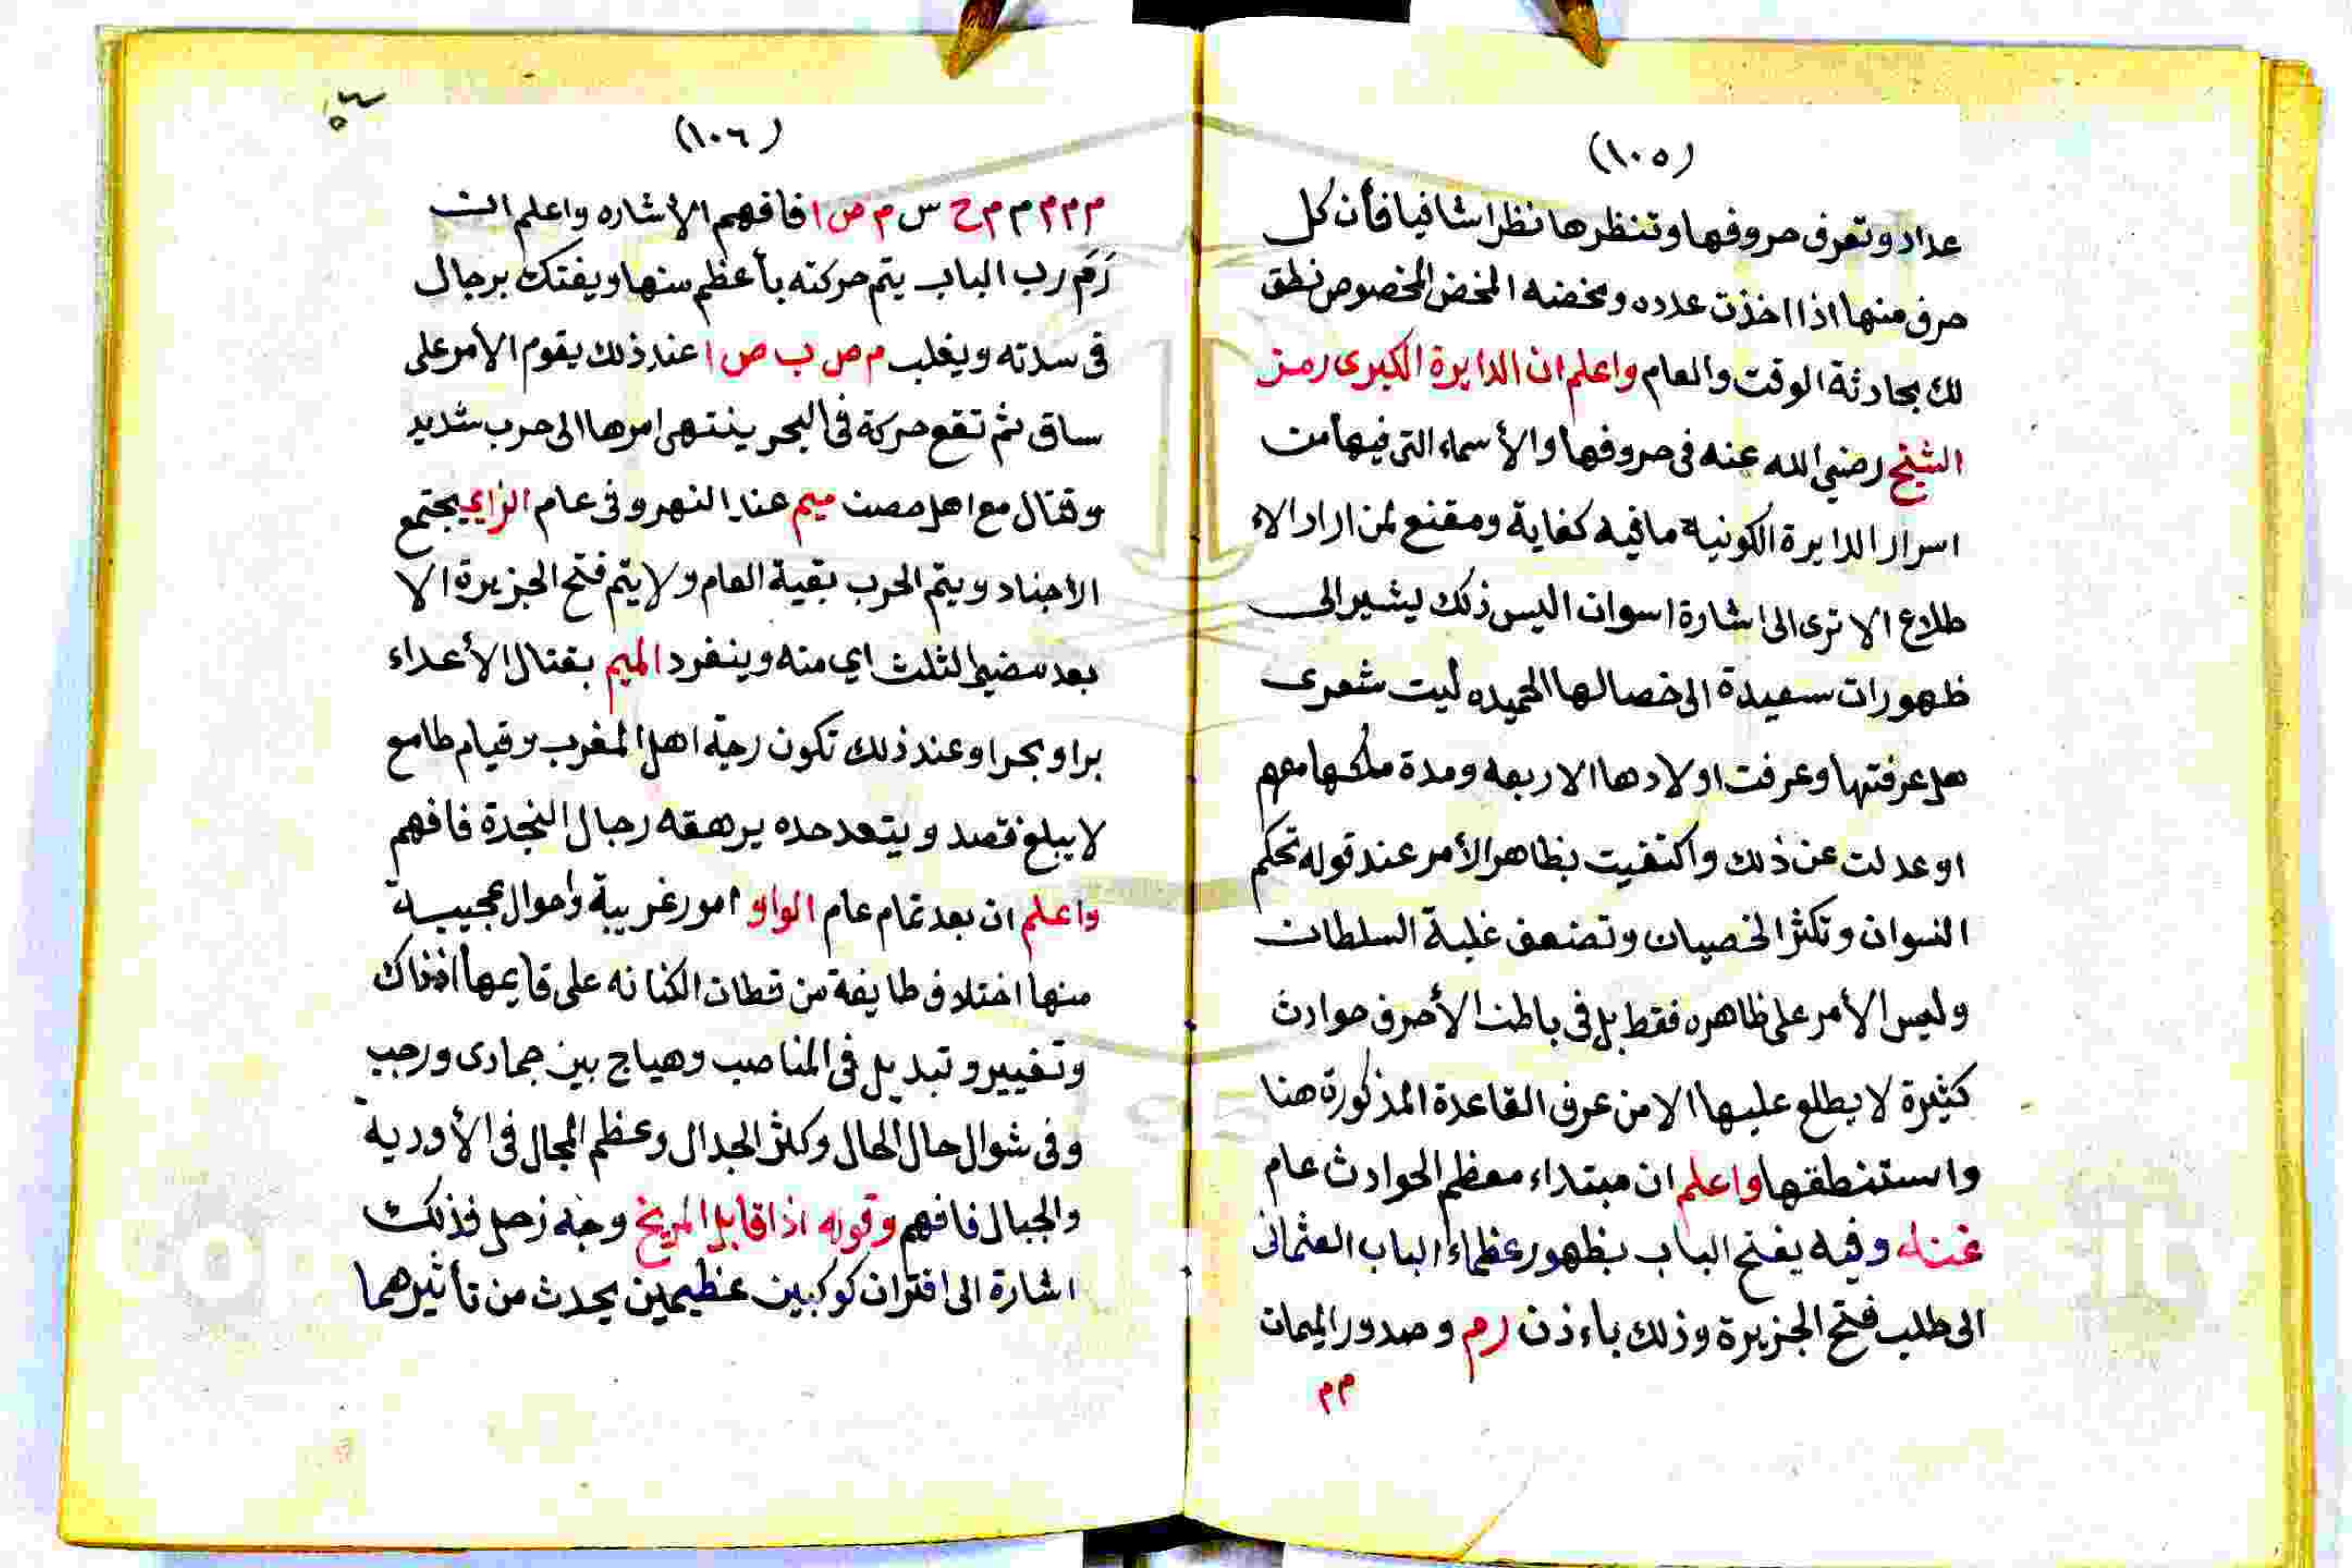 (١٠٥)
عداد وتعرف حروفها وتنظرها نظرا شافيا فأن كل
حرف منها اذا اخذت عدده ومخضته المخض المخصوص نطق
لك بحادثة الوقت والعام واعلم ان الدايرة الكبرى رمز
الشيخ رضي الله عنه فى حروفها والأسماء التى فيها من
اسرار الدايرة الكونية ما فيه كفاية ومقنع لمن اراد الا
طلاع الا ترى الى اشارة اسوان اليس ذلك ليشير الى
ظهورات سعيدة الى خصالها الحميده ليت شعرى
هل عرفتها وعرفت اولادها الاربعه ومدة ملكها معهم
او عدلت عن ذلك واكتفيت بظاهر الأمر عند قوله تحكم
النسوان وتكثر الخصيان وتضعف غلبة السلطان
وليس الأمر على ظاهره فقط بل فى باطن الأحرف حوادث
كثيرة لا يطلع عليها الا من عرف القاعدة المذكورة هنا
واستنطقها واعلم ان مبتداء معظم الحوادث عام
وفيه يفتح الباب بظهور عظماء الباب العثمانى
الى طلب فتح الجزيرة وذلك باءذن رم وصدور الميمان
م م
(١٠٦)
م م م م م ح س م ص ا فافهم الأشاره واعلم ان
رَمَ رب الباب يتم حركته بأعظم منها ويفتك برجال
فى سدته ويغلب م ص ب ص ا عند ذلك يقوم الأمر على
ساق ثم تقع حركة فى البحر ينتهى امرها الى حرب شديد
وقتال مع اهل حصن ميم عند النهر وفى عام الزاى يجتمع
الأجناد ويتم الحرب بقية العام ولا يتم فتح الجزيرة الا
بعد مضي الثلث اي منه وينفرد الميم بقتال الأعداء
برا وبحرا وعند ذلك تكون رجة اهل المغرب وقيام طامع
لا يبلغ قصد ويتعد حده يرهقه رجال النجدة فافهم
واعلم ان بعد تمام عام الواو امور غريبة واحوال عجيبة
منها اختلاف طايفة من قطان الكنانه على قايمها اذذاك
وتغيير وتبديل فى المناصب وهياج بين جمادى ورجب
وفى شوال حال الحال وكثر الجدال وعظم المجال فى الأوردية
والجبال فافهم وقوله اذا قابل المريخ وجه زحل فذلك
اشارة الى اقتران كوكبين عظيمين يحدث من تأثيرهما